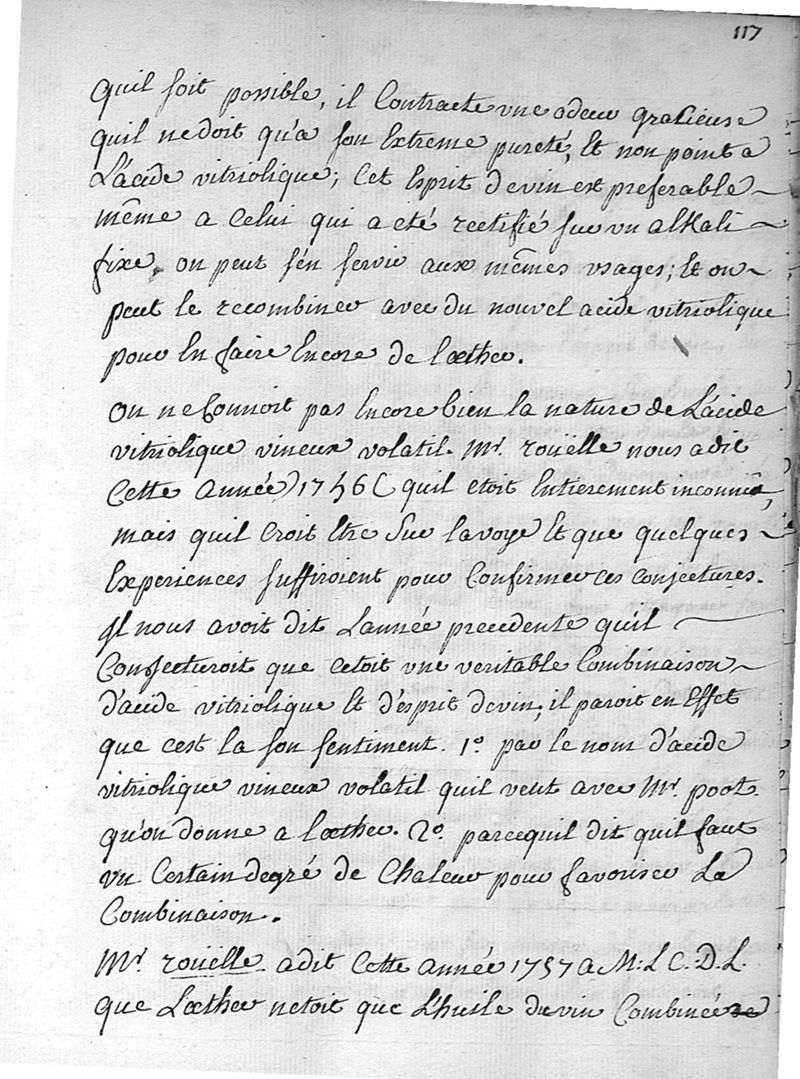 117
quil soit possible, il Contracte vne odeur gratieuse
quil ne doit qu'a son Extreme pureté, Et non point a
L'acide vitriolique; Cet Esprit de vin est preferable
même a Celui qui a eté rectifié sur vn alkali
fixe, on peut s'en servir aux mêmes vsages; Et on
peut le recombiner avec du nouvel acide vitriolique
pour En faire Encore de l'œther.
on ne Connoit pas Encore bien la nature de L'acide
vitriolique vineux volatil. Mr. rouëlle nous a dit
Cette année) 1756 ( quil etoit Entierement inconnu,
mais quil Croit Etre Sur la voye Et que quelques
Experiences suffiroient pour Confirmer ces conjectures.
Il nous avoit dit L'année precedente qu'il
Conjecturoit que c'etoit vne veritable Combinaison
d'acide vitriolique Et d'esprit de vin; il paroit en Effet
que cest la son sentiment. 1o. par le nom d'acide
vitriolique vineux volatil quil veut avec Mr. poot
qu'on donne a l'œther. 2o. parcequil dit quil faut
vn Certain degré de Chaleur pour favoriser La
Combinaison.
Mr. rouëlle a dit Cette année 1757 a M. L. C. D. L.
que L'œther n'etoit que L'huile du vin Combinée